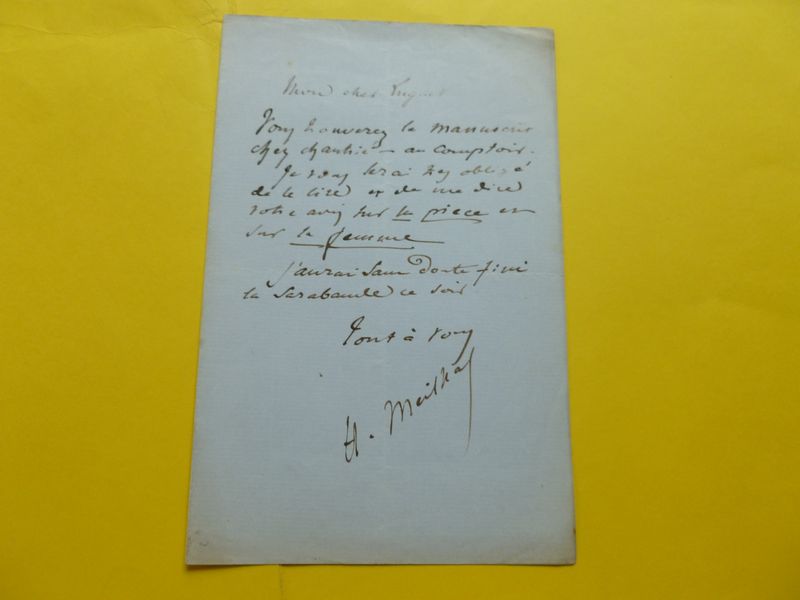 Mon cher Luguet
Vous trouverez le manuscrit
chez – au comptoir.
Je vous serai très obligé
de le lire et de me dire
votre avis sur la pièce et
sur la femme
j'aurai sans doute fini
la Sarabande ce soir.
Tout à vous
H. Meilhac